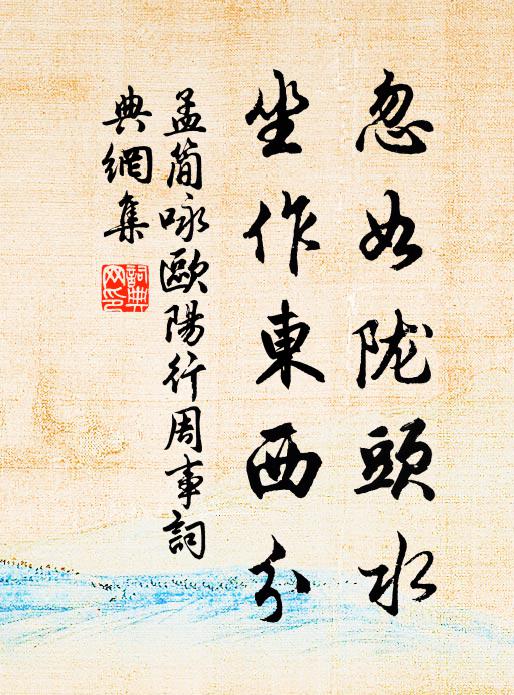 忽如陇頭水
坐作東西分
孟簡咏歐陽行周事詞
典網集
詞典網印